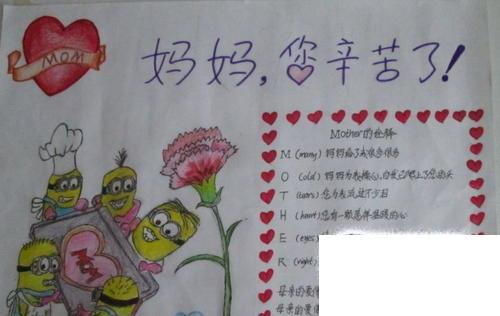 MOM
妈妈，您辛苦了！
Mother的诠释
M (many) 妈妈给了我很多很多
O (old) 妈妈为我操心,白发已爬上了您的头
T (tears) 您为我流过不少泪
H (heart) 您有一颗慈祥温暖的心
E (eyes)
R (right)
MOM
母亲的爱像
母亲的爱